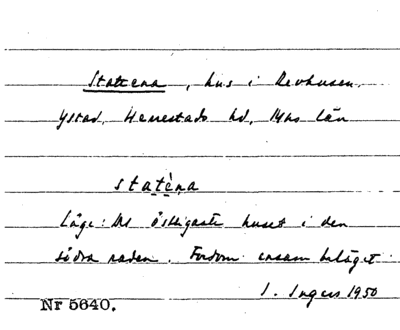 Statena, hus i Revhusen,
Ystad, Herrestads hd, Mhs län
statèna
Läge: Det östligaste huset i den
södra raden. Fordom ensam beläget
I. Ingers 1950
Nr 5640.